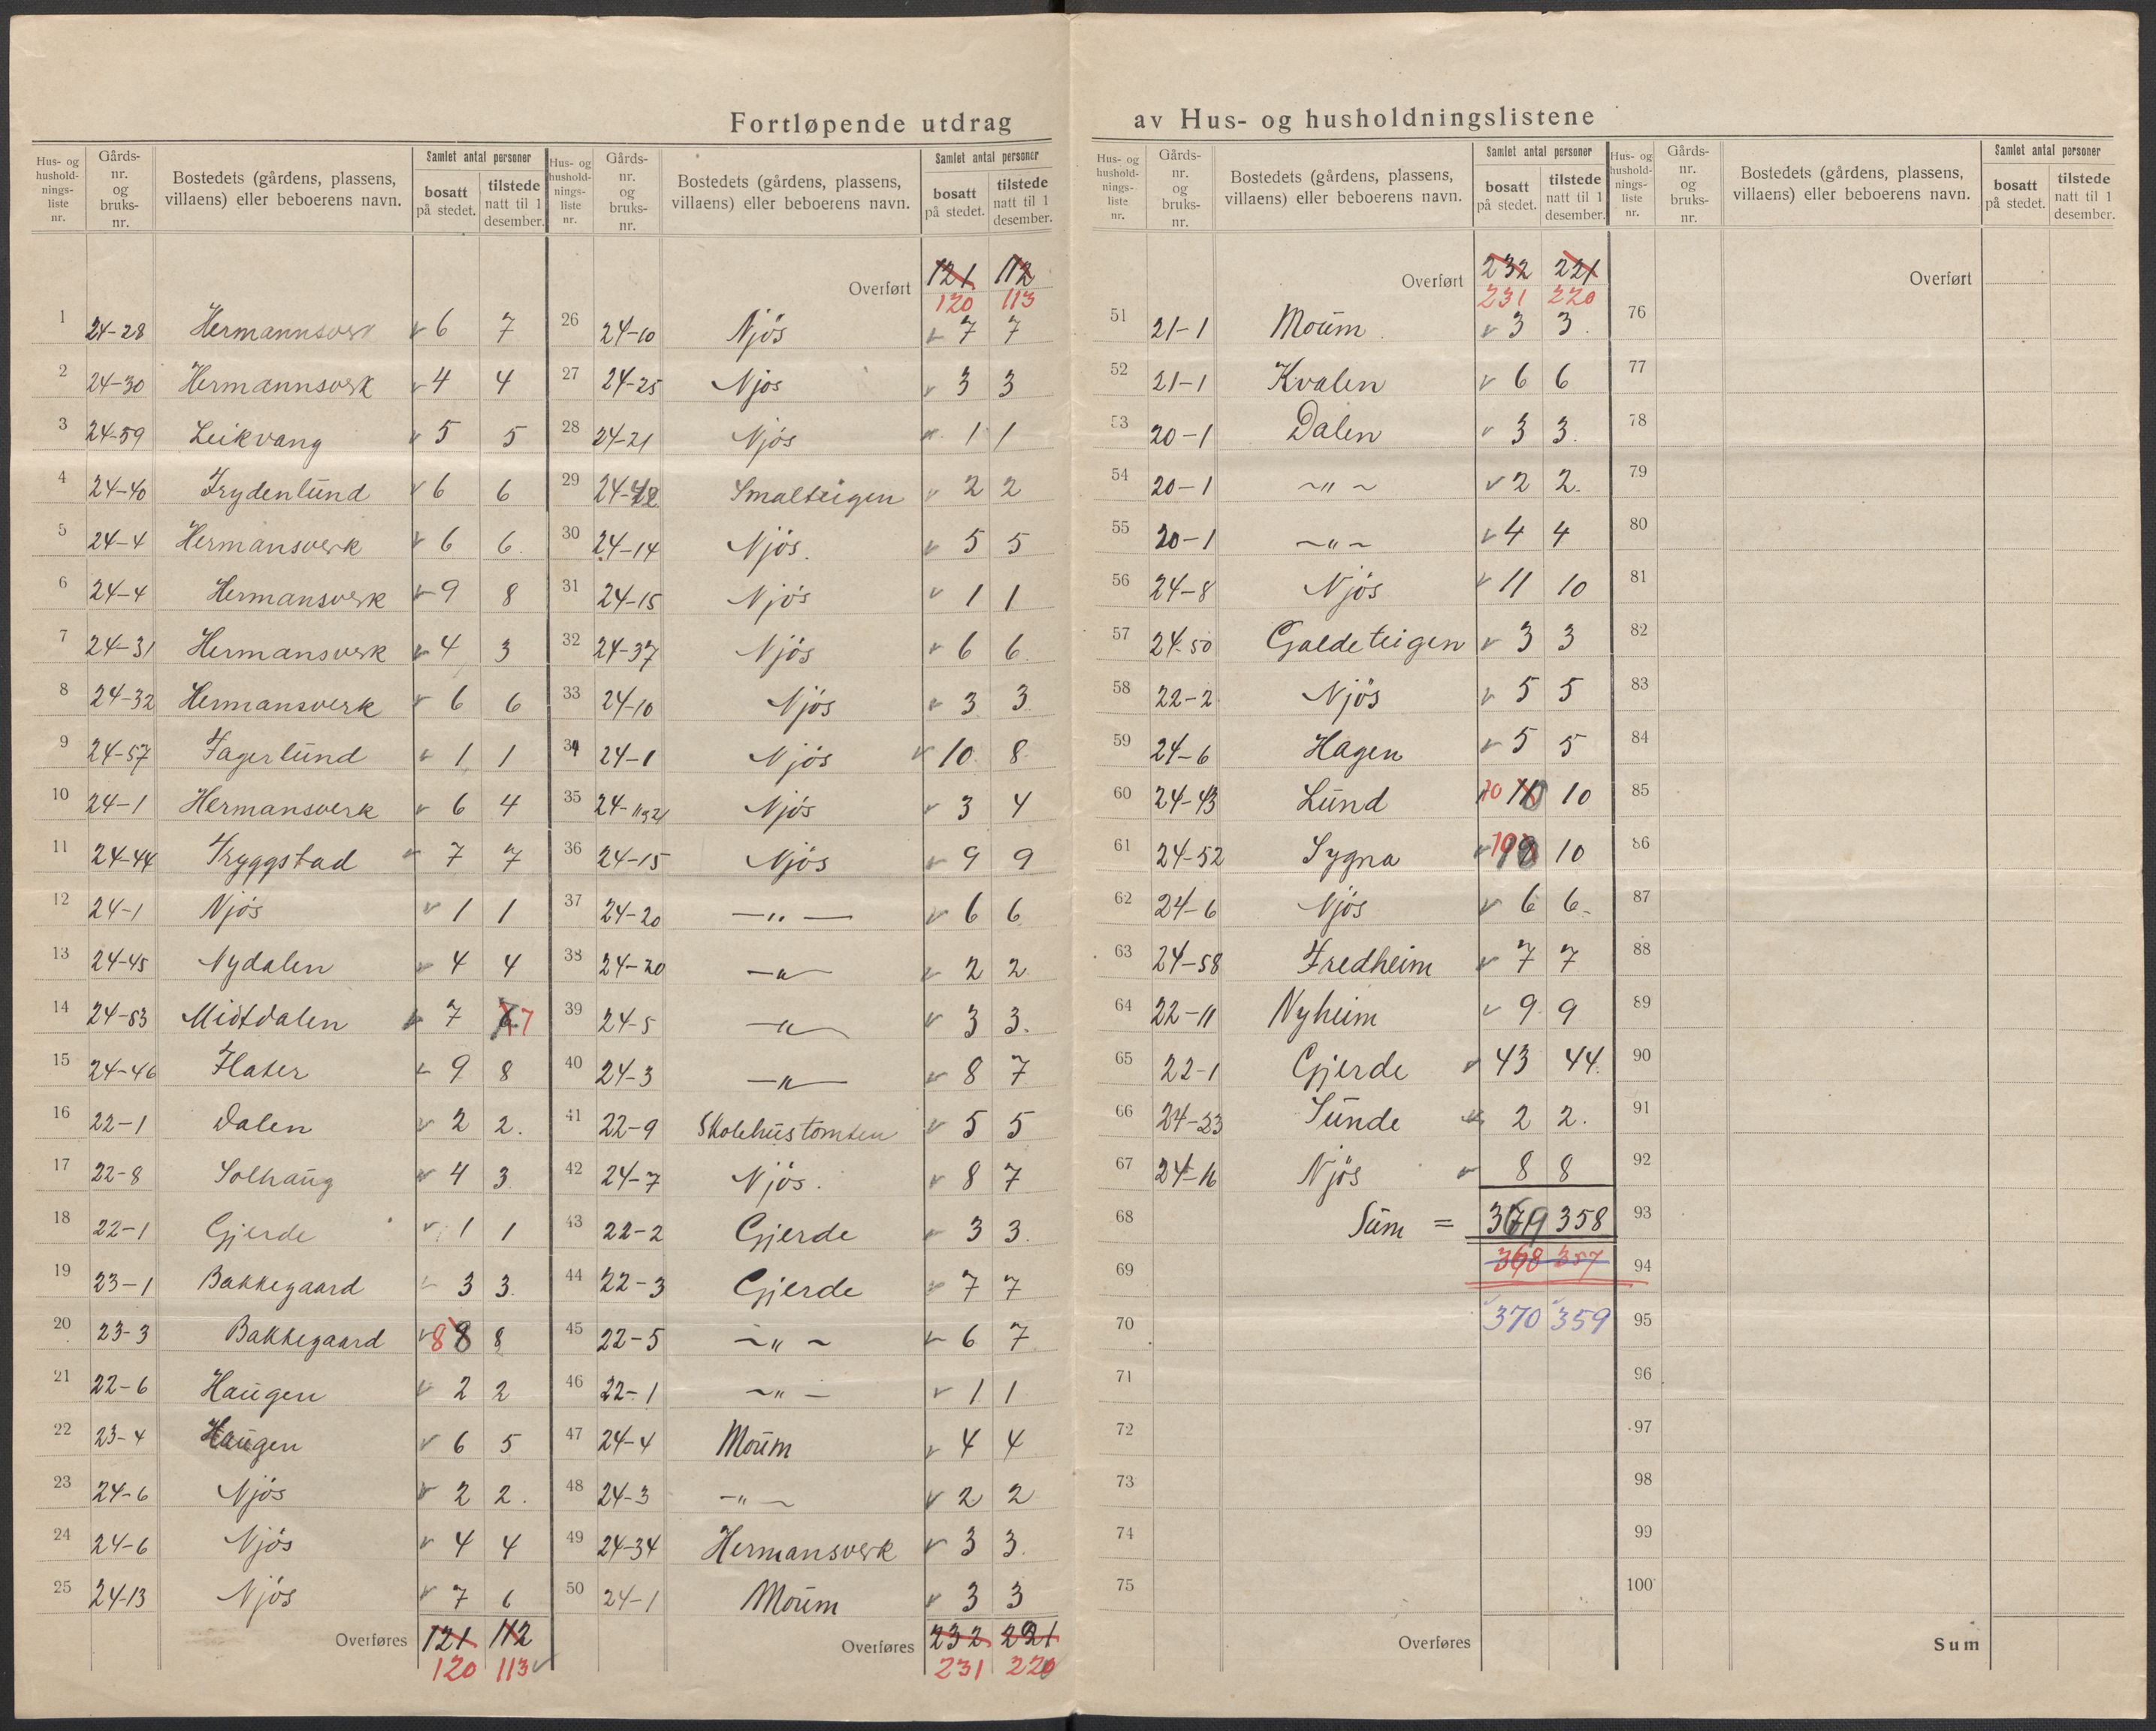 Fortløpende utdrag av Hus- og husholdningslistene
Hus- og hushold-nings-liste nr. Gårds-nr. og bruks-nr. Bostedets (gårdens, plassens, villaens) eller beboerens navn. Samlet antal personer bosatt på stedet. tilstede natt til 1 desember.
1 24-28 Hermannsverk 6 7
2 24-30 Hermannsverk 4 4
3 24-59 Leikvang 5 5
4 24-40 Frydenlund 6 6
5 24-4 Hermansverk 6 6
6 24-4 Hermansverk 9 8
7 24-31 Hermansverk 4 3
8 24-32 Hermansverk 6 6
9 24-57 Fagerlund 1 1
10 24-1 Hermansverk 6 4
11 24-44 Tryggstad 7 7
12 24-1 Njøs 1 1
13 24-45 Nydalen 4 4
14 24-53 Midtdalen 7 7
15 24-46 Flater 9 8
16 22-1 Dalen 2 2
17 22-8 Solhaug 4 3
18 22-1 Gjerde 1 1
19 23-1 Bakkegaard 3 3
20 23-3 Bakkegaard 8 8 8
21 22-6 Haugen 2 2
22 23-4 Haugen 6 5
23 24-6 Njøs 2 2
24 24-6 Njøs 4 4
25 24-13 Njøs 7 6
Overføres 121 112
120 113
Hus- og hushold-nings-liste nr. Gårds-nr. og bruks-nr. Bostedets (gårdens, plassens, villaens) eller beboerens navn. Samlet antal personer bosatt på stedet. tilstede natt til 1 desember.
Overført 121 112
120 113
26 24-10 Njös 7 7
27 24-25 Njøs 3 3
28 24-21 Njös 1 1
29 24-42 Smalteigen 2 2
30 24-14 Njös. 5 5
31 24-15 Njös 1 1
32 24-37 Njös 6 6
33 24-10 Njös 3 3
34 24-1 Njös 10 8
35 Njös 3 4
36 24-15 Njös 9 9
37 24-20 —"— 6 6
38 24-20 —"— 2 2
39 24-5 —"— 3 3.
40 24-3 —"— 8 7
41 22-9 Skolehustomten 5 5
42 24-7 Njös. 8 7
43 22-2 Gjerde 3 3.
44 22-3 Gjerde 7 7
45 22-5 ~"~ 6 7
46 22-1 ~"~ 1 1
47 24-4 Moum 4 4
48 24-3 —"— 2 2
49 24-34 Hermansverk 3 3
50 24-1 Moum 3 3
Overføres 232 221
231 220
Hus- og hushold-nings-liste nr. Gårds-nr. og bruks-nr. Bostedets (gårdens, plassens, villaens) eller beboerens navn. Samlet antal personer bosatt på stedet. tilstede natt til 1 desember.
Overført 232 221
231 220
51 21-1 Moum 3 3
52 21-1 Kvalen 6 6
53 20-1 Dalen 3 3.
54 20-1 ~"~ 2 2.
55 20-1 ~"~ 4 4
56 24-8 Njös 11 10
57 24-50 Galdeteigen 3 3
58 22-2 Njös 5 5
59 24-6 Hagen 5 5
60 24-43 Lund 10 10
61 24-52 Sygna 10 10
62 24-6 Njös 6 6
63 24-58 Fredheim 7 7
64 22-11 Nyheim 9 9
65 22-1 Gjerde 43 44
66 24-23 Sunde 2 2.
67 24-16 Njös 8 8
68 Sum = 369 358
69 368 357
70 370 359
71
72
73
74
75
Overføres
Hus- og hushold-nings-liste nr. Gårds-nr. og bruks-nr. Bostedets (gårdens, plassens, villaens) eller beboerens navn. Samlet antal personer bosatt på stedet. tilstede natt til 1 desember.
Overført
76
77
78
79
80
81
82
83
84
85
86
87
88
89
90
91
92
93
94
95
96
97
98
99
100
Sum